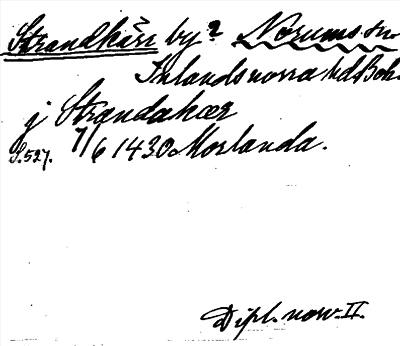 Strandkärr by? Norums sn
Inlands norra hd Boh.
j Strandakær
S.527. 7/6 1430 Morlanda.
Dipl. norv. II.